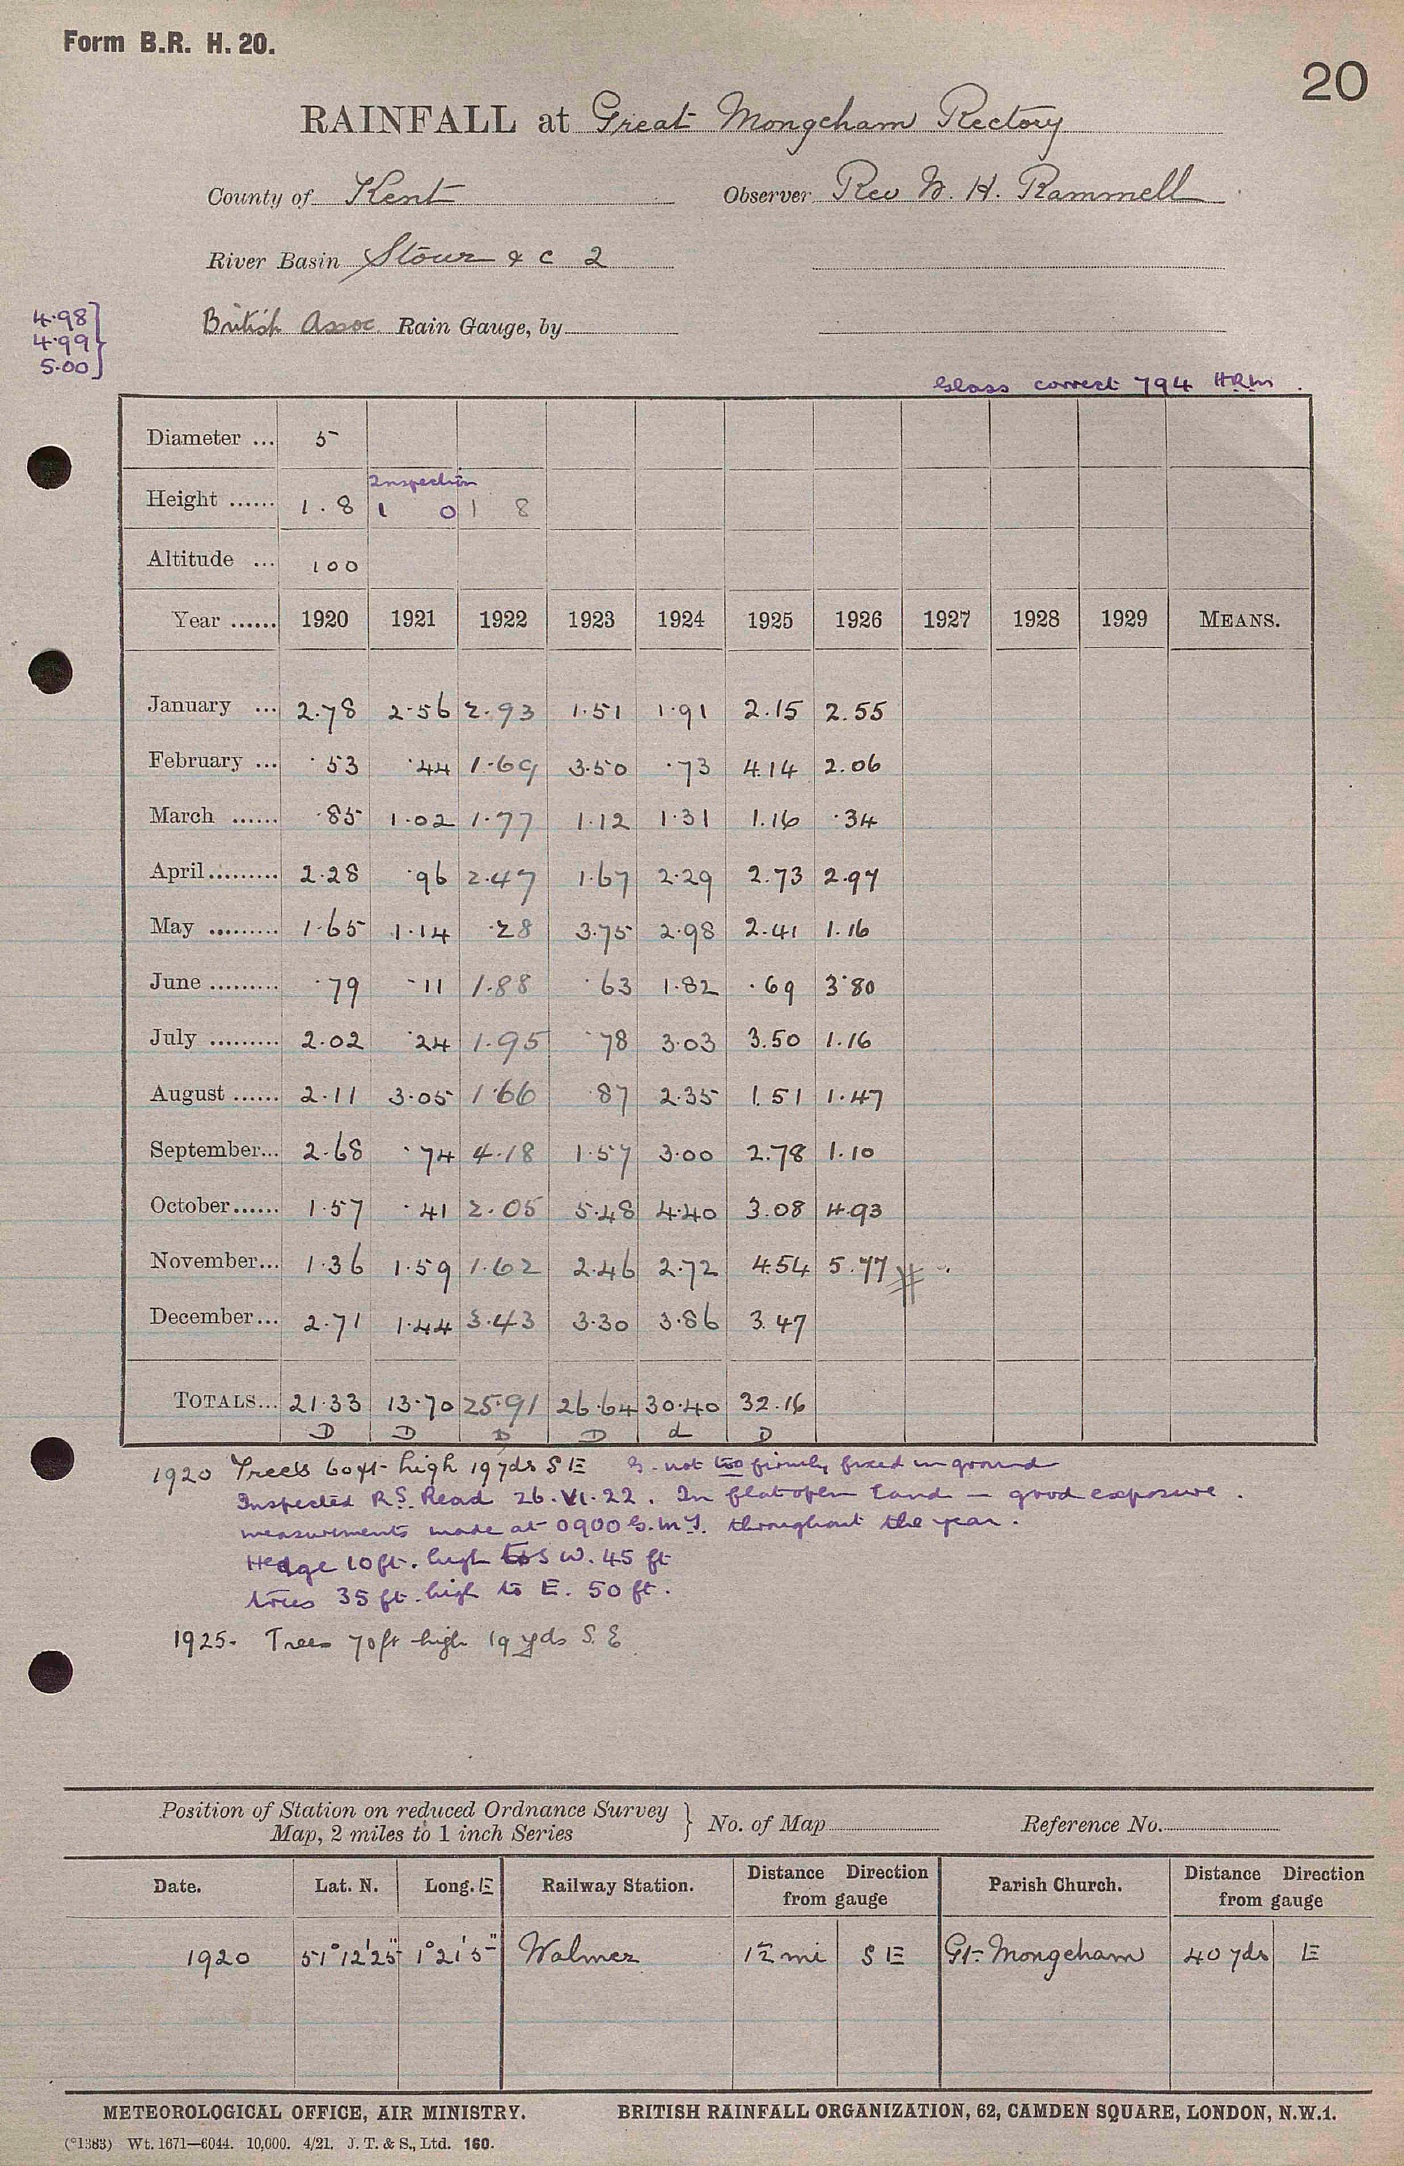 Form B.R. H. 20.
20
RAINFALL at Great Mongeham Rectory
County of Kent Observer Rev W. H. Rammell
River Basin Stour & c 2
British Assoc. Rain Gauge, by
4.98
4.99
5.00
Glass correct 794 HRM.
Diameter ... 5
Inspection
Height ...... 1.8 1 0 1 8
Altitude ... 100
Year ...... 1920 1921 1922 1923 1924 1925 1926 1927 1928 1929 MEANS.
January ... 2.78 2.56 2.93 1.51 1.91 2.15 2.55
February ... .53 .44 1.69 3.50 .73 4.14 2.06
March ...... .85 1.02 1.77 1.12 1.31 1.16 .34
April ......... 2.28 .96 2.47 1.67 2.29 2.73 2.97
May ......... 1.65 1.14 .28 3.75 2.98 2.41 1.16
June ......... .79 .11 1.88 .63 1.82 .69 3.80
July ......... 2.02 .24 1.95 .78 3.03 3.50 1.16
August ...... 2.11 3.05 1.66 .87 2.35 1.51 1.47
September... 2.68 .74 4.18 1.57 3.00 2.78 1.10
October...... 1.57 .41 2.05 5.48 4.40 3.08 4.93
November... 1.36 1.59 1.62 2.46 2.72 4.54 5.77
December... 2.71 1.44 3.43 3.30 3.86 3.47
TOTALS... 21.33 13.70 25.91 26.64 30.40 32.16
D D D D d D
1920 Trees 60 ft high 19 yds S E G. not too firmly fixed in ground
Inspected R.S. Read 26.VI.22. In flat open land — good exposure.
measurements made at 0900 G.M.T. throughout the year.
Hedge 10 ft. high to S W. 45 ft
trees 35 ft. high to E. 50 ft.
1925. Trees 70 ft high 19 yds S. E
Position of Station on reduced Ordnance Survey
Map, 2 miles to 1 inch Series
No. of Map Reference No.
Date. Lat. N. Long. E Railway Station. Distance Direction from gauge Parish Church. Distance Direction from gauge
1920 51°12'25" 1°21'5" Walmer 1½ mi S E Gt. Mongeham 40 yds E
METEOROLOGICAL OFFICE, AIR MINISTRY. BRITISH RAINFALL ORGANIZATION, 62, CAMDEN SQUARE, LONDON, N.W.1.
(*1383) Wt. 1671—6044. 10,000. 4/21. J. T. & S., Ltd. 160.